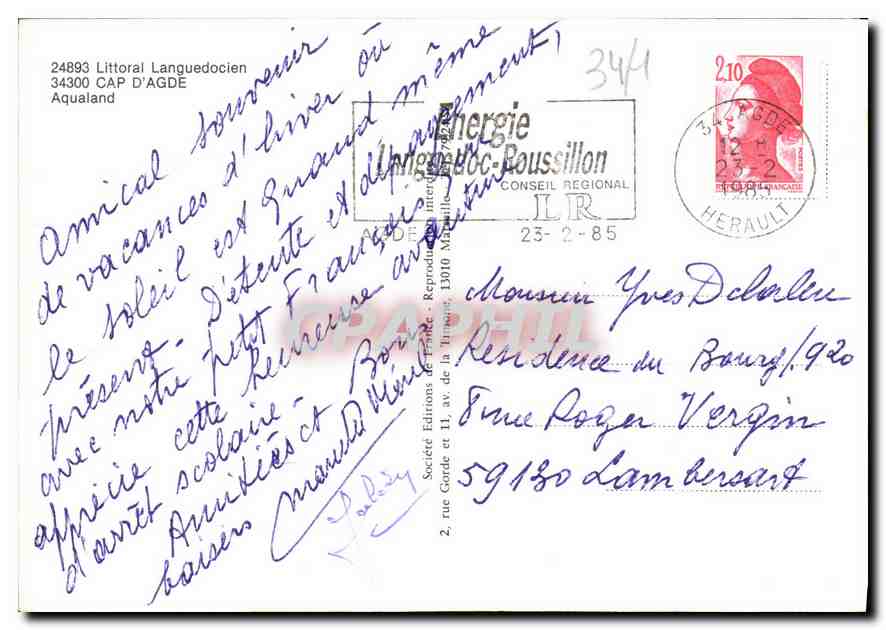 24893 Littoral Languedocien
34300 CAP D'AGDE
Aqualand
Amical souvenir
de vacances d'hiver où
le soleil est quand même
présent. Détente et dépaysement,
avec notre petit François qui
apprécie cette heureuse aventure
d'arrêt scolaire. Bons
Amitiés et
baisers
Société Editions de France - Reproduction interdite
2, rue Gorde et 11, av. de la Timone, 13010 Marseille
34/1
Energie
Languedoc-Roussillon
CONSEIL REGIONAL
LR
AGDE 23-2-85
2,10
REPUBLIQUE FRANÇAISE
34 AGDE
12 H
23-2
1985
HERAULT
Monsieur Yves Delaleu
Résidence du Bourg/920
8 rue Roger Vergin
59130 Lambersart
GRAPHIL